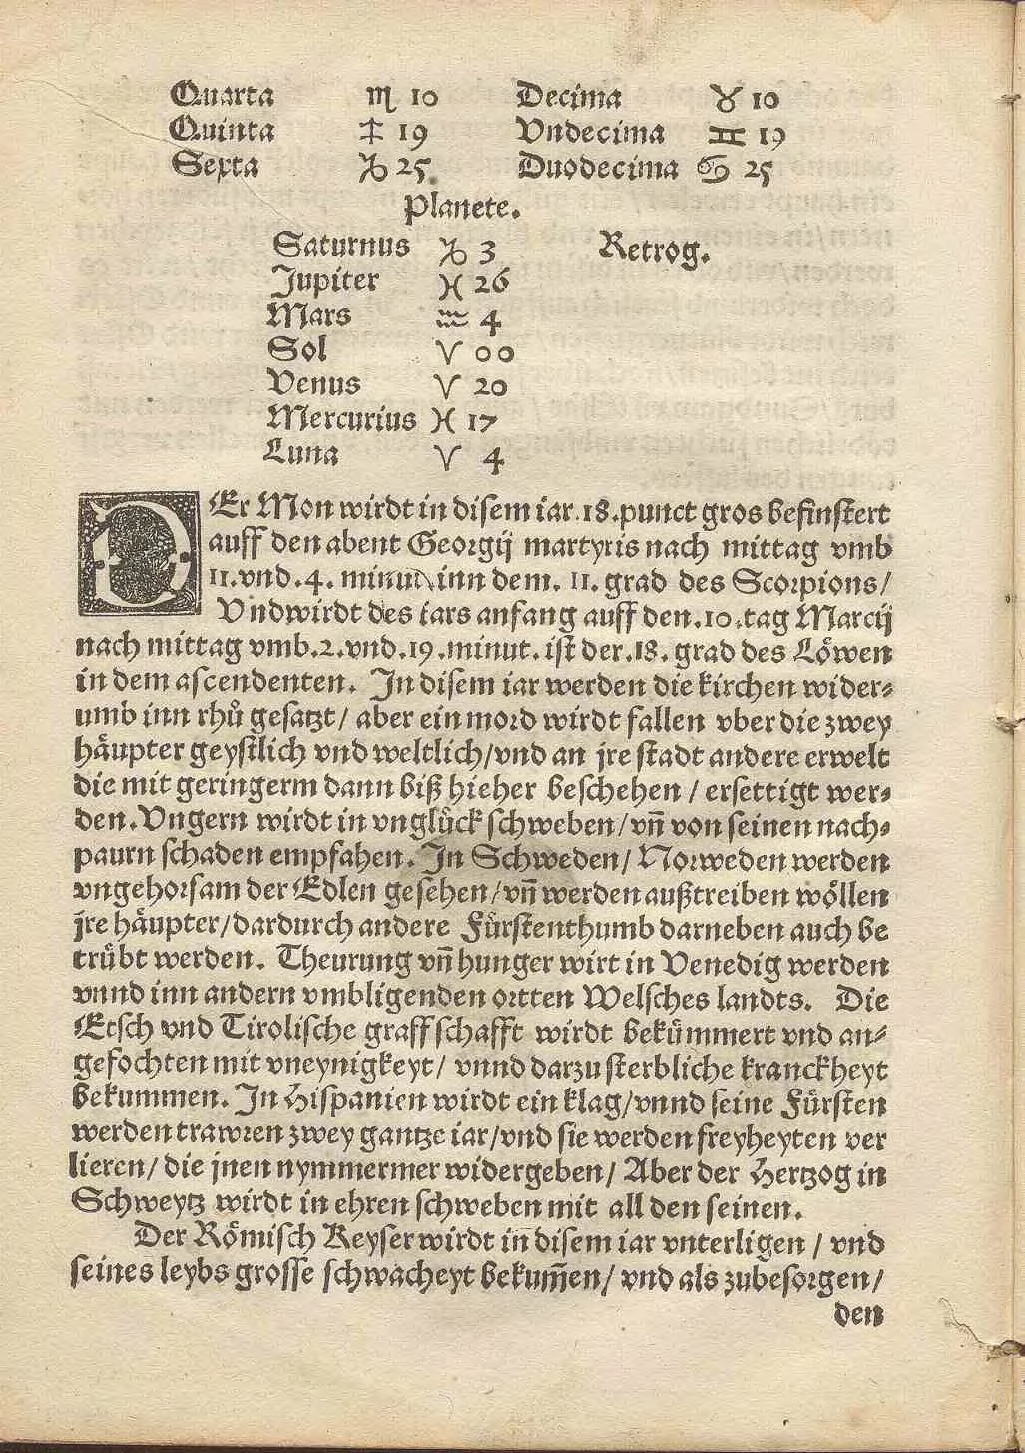 Quarta ♏ 10 Decima ♉ 10
Quinta ♐ 19 Vndecima ♊ 19
Sexta ♑ 25. Duodecima ♋ 25
Planete.
Saturnus ♑ 3 Retrog.
Jupiter ♓ 26
Mars ♒ 4
Sol ♈ 00
Venus ♈ 20
Mercurius ♓ 17
Luna ♈ 4
DEr Mon wirdt in disem iar .18. punct gros befinstert
auff den abent Georgij martyris nach mittag vmb
11. vnd .4. minut inn dem .11. grad des Scorpions/
Vnd wirdt des iars anfang auff den .10. tag Marcij
nach mittag vmb .2. vnd .19. minut. ist der .18. grad des Löwen
in dem ascendenten. In disem iar werden die kirchen wider⸗
umb inn rhů gesatzt/ aber ein mord wirdt fallen vber die zwey
häupter geystlich vnd weltlich/ vnd an jre stadt andere erwelt
die mit geringerm dann biß hieher beschehen/ ersettigt wer⸗
den. Vngern wirdt in vnglück schweben/ vñ von seinen nach⸗
paurn schaden empfahen. In Schweden/ Norweden werden
vngehorsam der Edlen gesehen/ vñ werden außtreiben wöllen
jre häupter/ dardurch andere Fürstenthumb darneben auch be
trübt werden. Theurung vñ hunger wirt in Venedig werden
vnnd inn andern vmbligenden ortten Welsches landts. Die
Etsch vnd Tirolische graffschafft wirdt bekümmert vnd an⸗
gefochten mit vneynigkeyt/ vnnd darzu sterbliche kranckheyt
bekummen. In Hispanien wirdt ein klag/ vnnd seine Fürsten
werden trawren zwey gantze iar/ vnd sie werden freyheyten ver
lieren/ die jnen nymmermer widergeben/ Aber der Hertzog in
Schweytz wirdt in ehren schweben mit all den seinen.
Der Römisch Keyser wirdt in disem iar vnterligen/ vnd
seines leybs grosse schwacheyt bekum̃en/ vnd als zubesorgen/
den